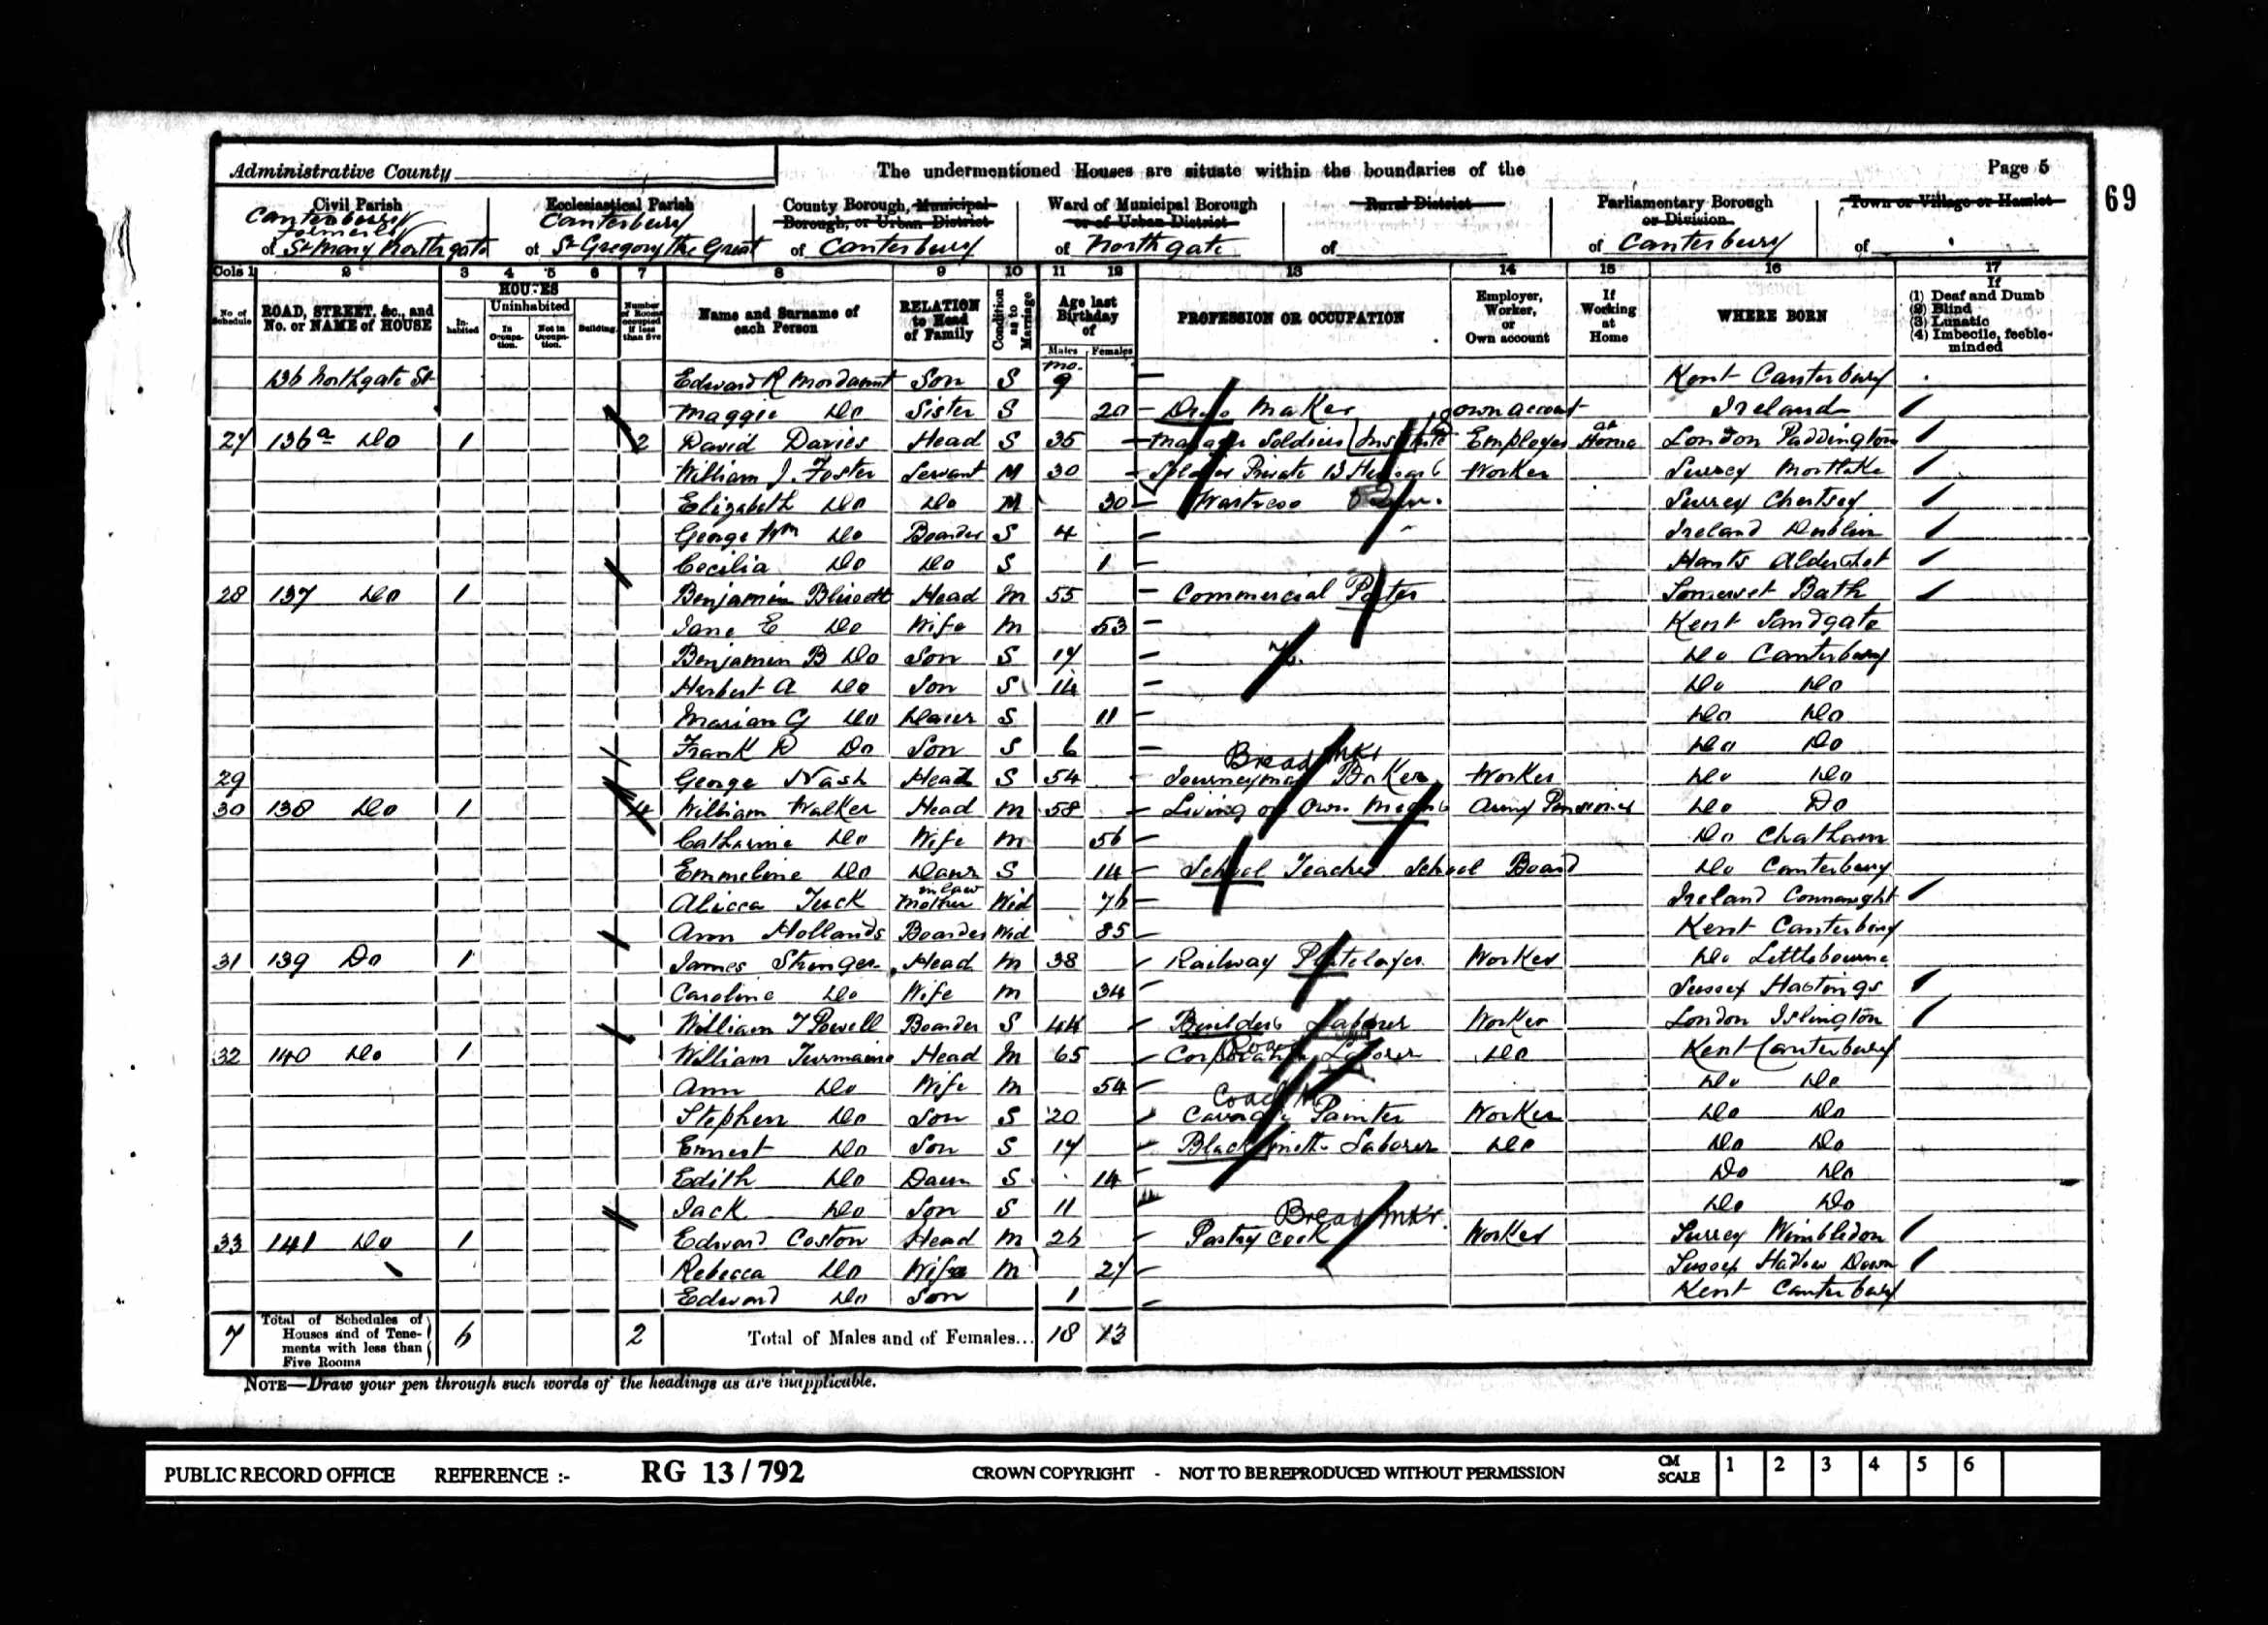 Administrative County
The undermentioned Houses are situate within the boundaries of the
Page 5
69
Civil Parish
Canterbury
formerly
of St Mary Northgate
Ecclesiastical Parish
Canterbury
of St Gregory the Great
County Borough, Municipal
Borough, or Urban District
of Canterbury
Ward of Municipal Borough
or of Urban District
of Northgate
Rural District
of
Parliamentary Borough
or Division
of Canterbury
Town or Village or Hamlet
of
Cols 1 2 3 4 5 6 7 8 9 10 11 12 13 14 15 16 17
No of Schedule
ROAD, STREET, &c., and No. or NAME of HOUSE
HOUSES
Inhabited
Uninhabited
In Occupation.
Not in Occupation.
Building
Number of Rooms occupied if less than five
Name and Surname of each Person
RELATION to Head of Family
Condition as to Marriage
Age last Birthday of
Males Females
PROFESSION OR OCCUPATION
Employer, Worker, or Own account
If Working at Home
WHERE BORN
If
(1) Deaf and Dumb
(2) Blind
(3) Lunatic
(4) Imbecile, feeble-minded
136 Northgate St Edward R Mordaunt Son S mo. 9 Kent Canterbury
Maggie Do Sister S 20 Dress Maker own account Ireland
27 136a Do 1 2 David Davies Head S 35 Manager Soldiers Institute Employer at Home London Paddington
William J. Foster Servant M 30 Soldier Private 13 Hussars Worker Surrey Mortlake
Elizabeth Do Do M 30 Waitress Surrey Chertsey
George Wm Do Boarder S 4 Ireland Dublin
Cecilia Do Do S 1 Hants Aldershot
28 137 Do 1 Benjamin Head M 55 Commercial Porter Somerset Bath
Jane E Do Wife M 53 Kent Sandgate
Benjamin B Do Son S 17 Do Canterbury
Herbert A Do Son S 14 Do Do
Marian G Do Daur S 11 Do Do
Frank D Do Son S 6 Do Do
Bread Mkr
29 George Nash Head S 54 Journeyman Baker Worker Do Do
30 138 Do 1 4 William Walker Head M 58 Living on Own Means Army Pensioner Do Do
Catharine Do Wife M 56 Do Chatham
Emmeline Do Daur S 14 School Teacher School Board Do Canterbury
Alicca Tuck Mother in law Wid 76 Ireland Connaught
Ann Hollands Boarder Wid 85 Kent Canterbury
31 139 Do 1 James Stringer Head M 38 Railway Platelayer Worker Do Littlebourne
Caroline Do Wife M 34 Sussex Hastings
William T Powell Boarder S 44 Builders Laborer Worker London Islington
Road
32 140 Do 1 William Turmaine Head M 65 Corporation Laborer Do Kent Canterbury
Ann Do Wife M 54 Do Do
Coach
Stephen Do Son S 20 Carriage Painter Worker Do Do
Ernest Do Son S 17 Blacksmith Laborer Do Do Do
Edith Do Daur S 14 Do Do
Jack Do Son S 11 Do Do
Bread Mkr.
33 141 Do 1 Edward Coston Head M 26 Pastry Cook Worker Surrey Wimbledon
Rebecca Do Wife M 27 Sussex Hadlow Down
Edward Do Son 1 Kent Canterbury
7 Total of Schedules of Houses and of Tenements with less than Five Rooms 6 2 Total of Males and of Females... 18 13
NOTE—Draw your pen through such words of the headings as are inapplicable.
PUBLIC RECORD OFFICE REFERENCE :- RG 13/792 CROWN COPYRIGHT - NOT TO BE REPRODUCED WITHOUT PERMISSION CM SCALE 1 2 3 4 5 6